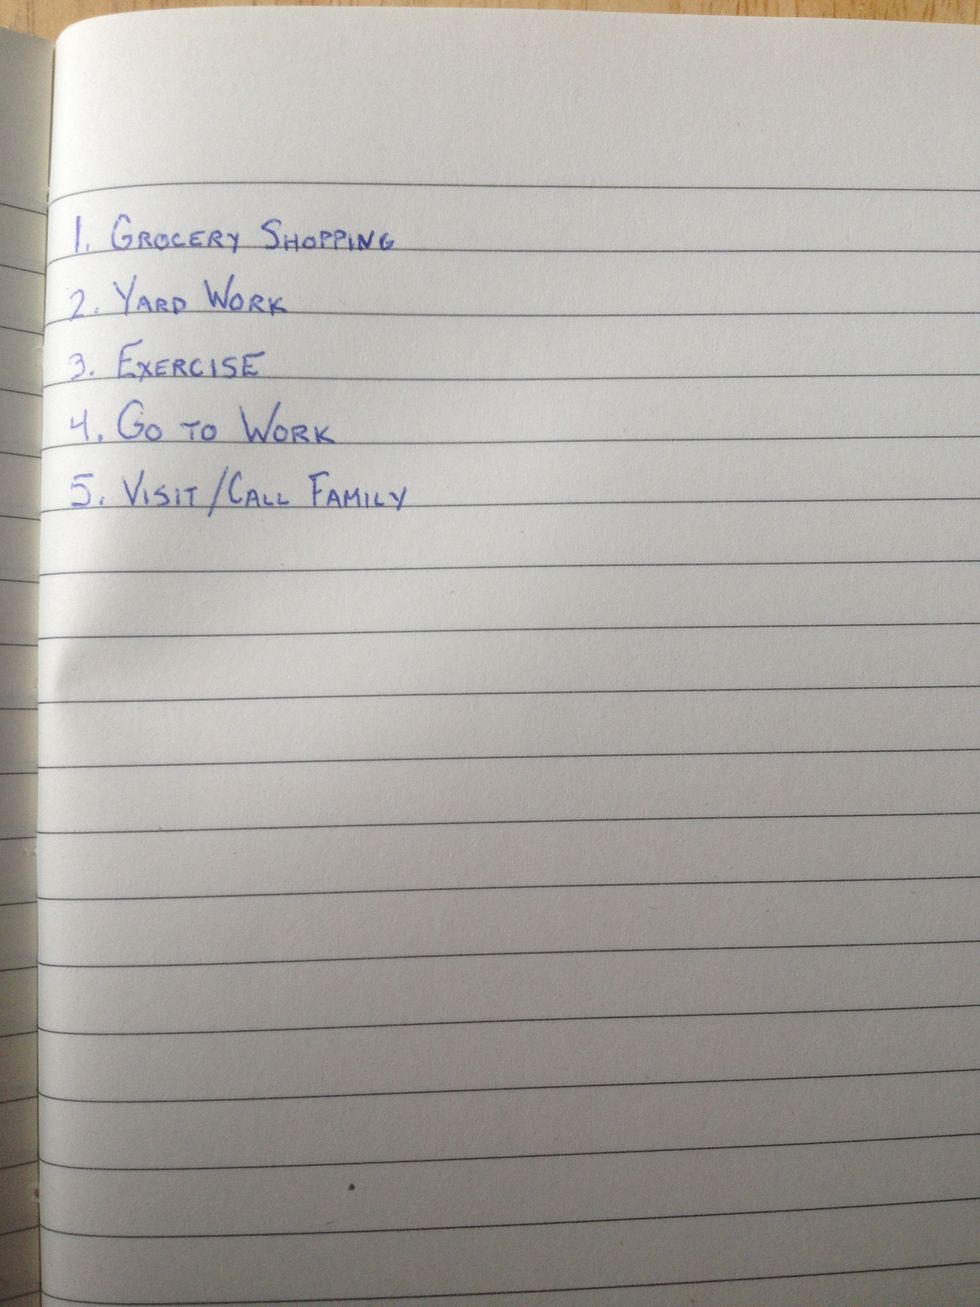 1. GROCERY SHOPPING
2. YARD WORK
3. EXERCISE
4. GO TO WORK
5. VISIT/CALL FAMILY